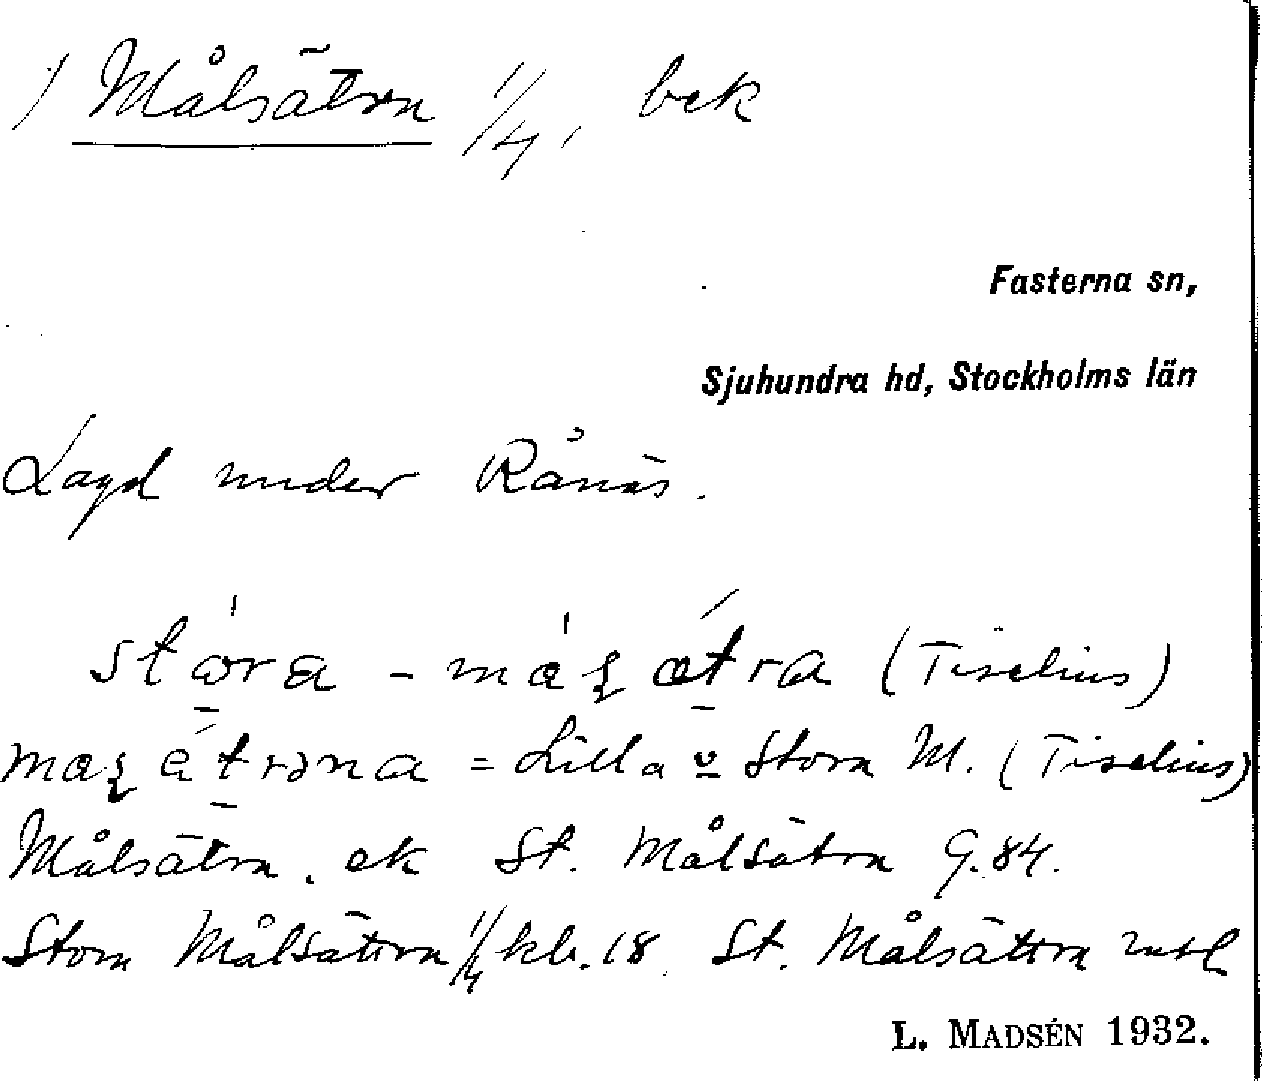 1) Målsätra 1/4, bek
Fasterna sn,
Sjuhundra hd, Stockholms län
Lagd under Rånäs.
(Tiselius)
= Lilla o Stora M. (Tiselius)
Målsätra. ek St. Målsätra G.84.
Stora Målsättra 1/4 kb. 18. St. Målsättra
L. MADSÉN 1932.